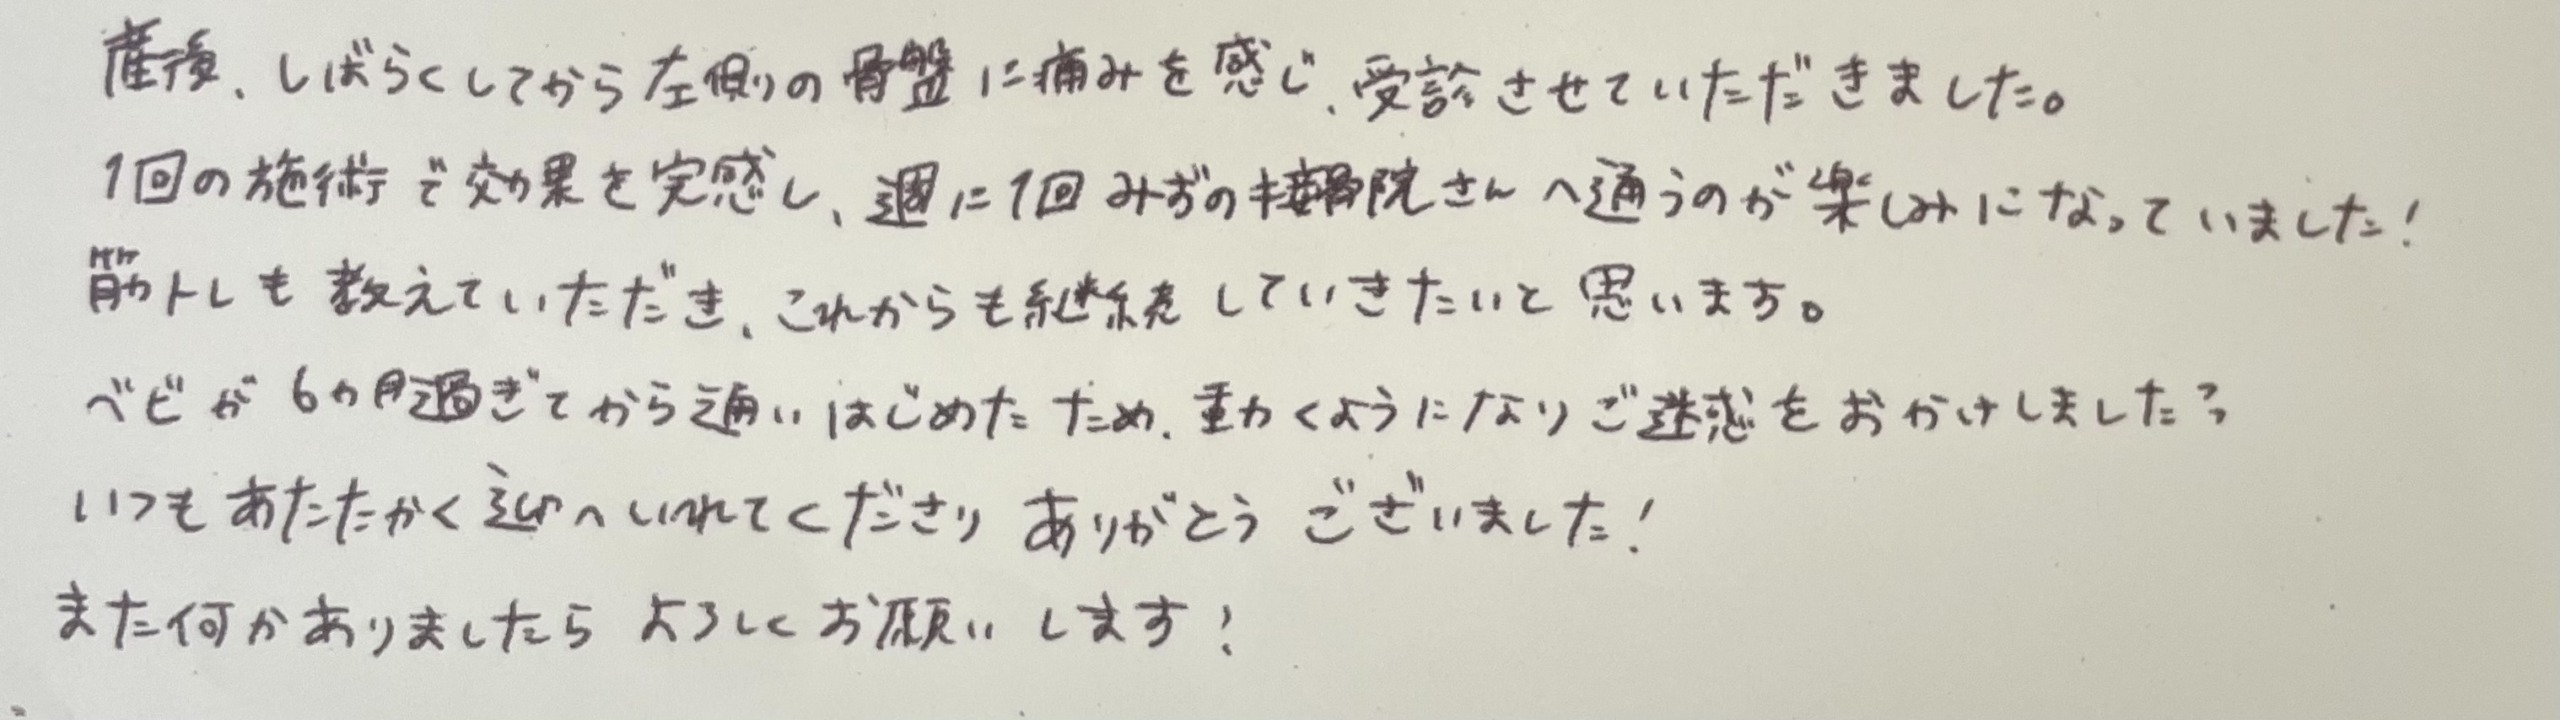 産後、しばらくしてから左側の骨盤に痛みを感じ、受診させていただきました。
1回の施術で効果を実感し、週に1回みぞの接骨院さんへ通うのが楽しみになっていました!
筋トレも教えていただき、これからも継続していきたいと思います。
ベビが6カ月過ぎてから通いはじめたため、動くようになりご迷惑をおかけしました
いつもあたたかく迎へいれてくださりありがとうございました!
また何かありましたらよろしくお願いします!